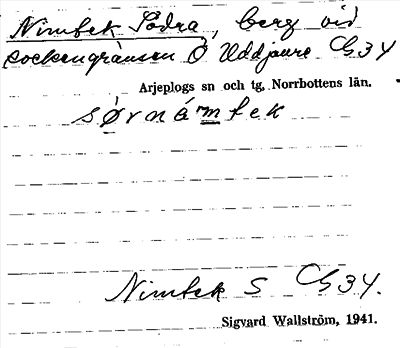 Nimtek Södra, berg vid
sockengränsen Ö Uddjaure C 34
Arjeplogs sn och tg, Norrbottens län.
sørnámtek
Nimtek S C 34.
Sigvard Wallström, 1941.